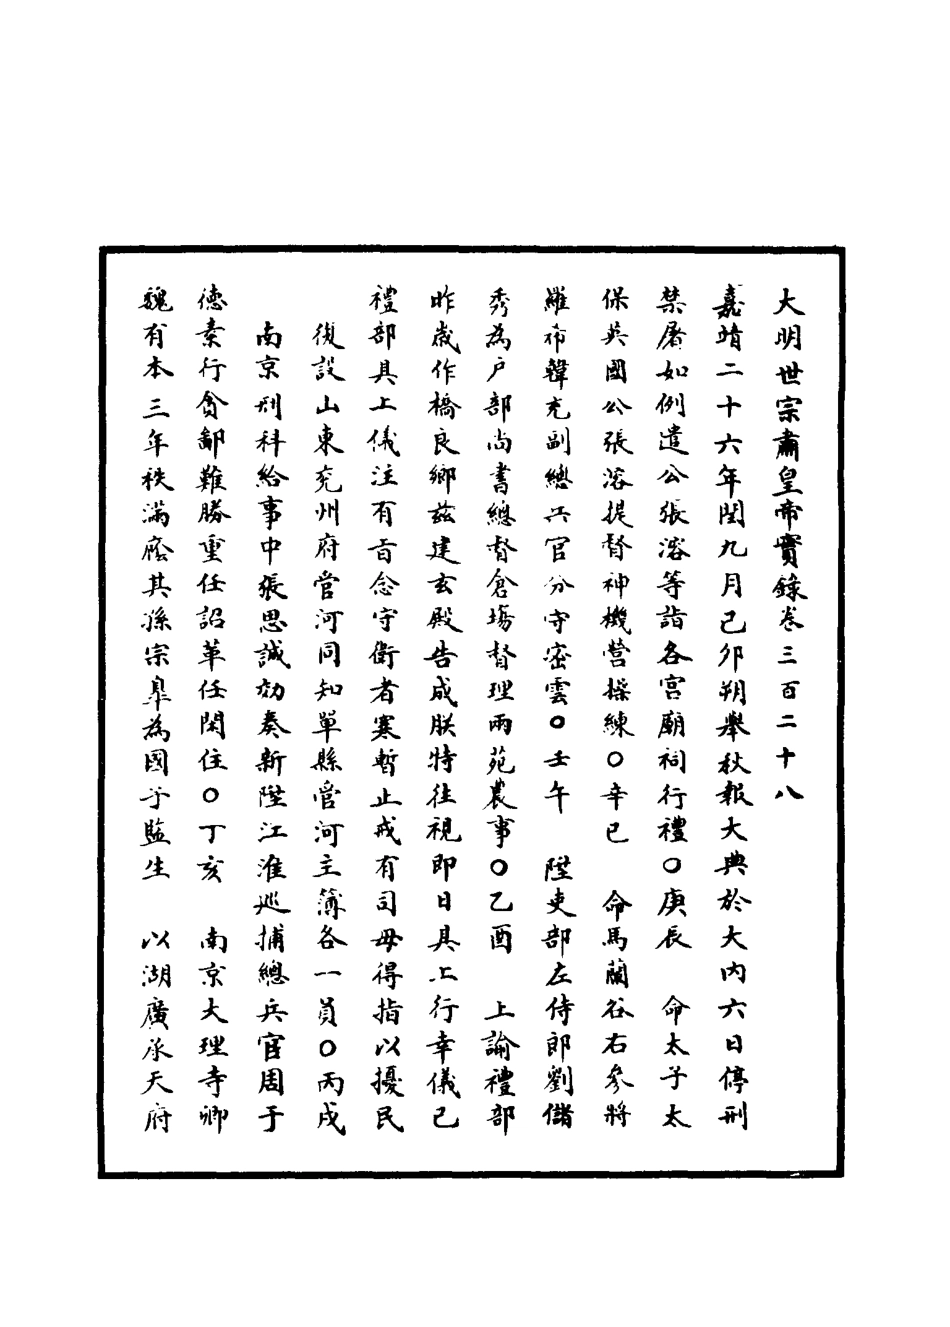 大明世宗肅皇帝實錄卷三百二十八
嘉靖二十六年閏九月己卯朔舉秋報大典於大內六日停刑
禁屠如例遣公張溶等詣各宮廟祠行禮○庚辰　命太子太
保英國公張溶提督神機營操練○辛巳　命馬蘭谷右參將
羅希韓充副總兵官分守密雲○壬午　陞吏部左侍郎劉儲
秀為戶部尚書總督倉場督理兩苑農事○乙酉　上諭禮部
昨歲作橋良鄉茲建玄殿告成朕特往視即日具上行幸儀已
禮部具上儀注有旨念守衛者寒暫止戒有司毋得指以擾民
復設山東兗州府管河同知單縣管河主簿各一員○丙戌
南京刑科給事中張思誠劾奏新陞江淮巡捕總兵官周于
德素行貪鄙難勝重任詔革任閑住○丁亥　南京大理寺卿
魏有本三年秩滿廕其孫宗皐為國子監生　以湖廣承天府